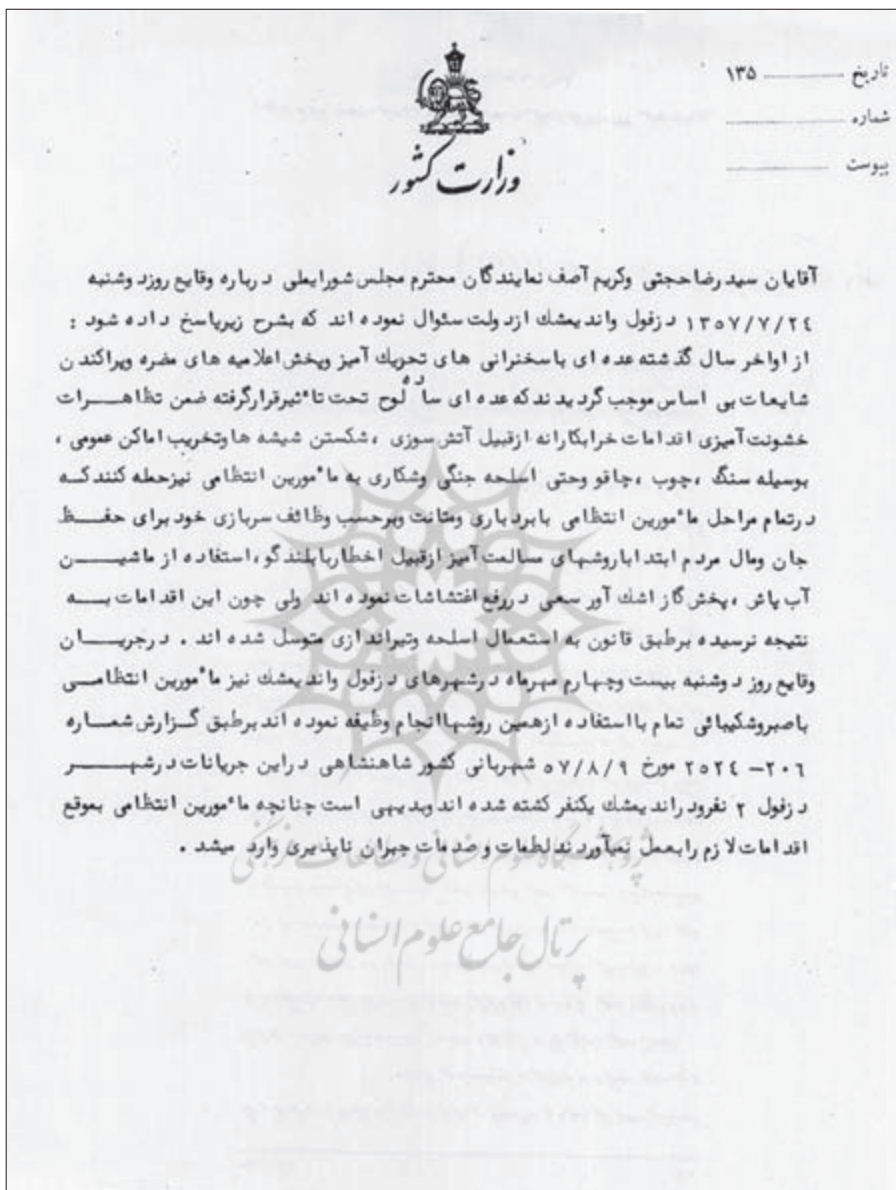 تاریخ ــــــــــ ۱۳۵
شماره ــــــــــ
پیوست ــــــــــ
وزارت کشور
آقایان سید رضا حجتی وکریم آصف نمایندگان محترم مجلس شورایملی درباره وقایع روزدوشنبه
۱۳۵۷/۷/۲٤ دزفول واندیمشك ازدولت سئوال نموده اند که بشرح زیرپاسخ داده شود :
از اواخر سال گذشته عده ای باسخنرانی های تحریك آمیز وپخش اعلامیه های مضره وپراکندن
شایعات بی اساس موجب گردیدندکه عده ای ساده لوح تحت تأثیرقرارگرفته ضمن تظاهـــرات
خشونت آمیزی اقدامات خرابکارانه ازقبیل آتش سوزی ،شکستن شیشه هاوتخریب اماکن عمومی ،
بوسیله سنگ ،چوب ،چاقو وحتی اسلحه جنگی وشکاری به مأمورین انتظامی نیزحمله کنندکــه
درتمام مراحل مأمورین انتظامی بابردباری ومتانت وبرحسب وظائف سربازی خود برای حفــظ
جان ومال مردم ابتداباروشهای مسالمت آمیز ازقبیل اخطاربابلندگو،استفاده از ماشیـــن
آب پاش ،پخش گاز اشك آور سعی دررفع اغتشاشات نموده اند ولی چون این اقدامات بـــه
نتیجه نرسیده برطبق قانون به استعمال اسلحه وتیراندازی متوسل شده اند . درجریـــان
وقایع روز دوشنبه بیست وچهارم مهرماه درشهرهای دزفول واندیمشك نیز مأمورین انتظامــی
باصبروشکیبائی تمام بااستفاده ازهمین روشهاانجام وظیفه نموده اندبرطبق گــزارش شمـــاره
۲۰۶–۲۵۲٤ مورخ ۵۷/۸/۹ شهربانی کشور شاهنشاهی دراین جریانات درشهـــــر
دزفول ۲ نفرودراندیمشك یکنفر کشته شده اندوبدیهی است چنانچه مأمورین انتظامی بموقع
اقدامات لازم رابعمل نمیآوردندلطمات وصدمات جبران ناپذیری وارد میشد .
پژوهشگاه علوم انسانی و مطالعات فرهنگی
پرتال جامع علوم انسانی